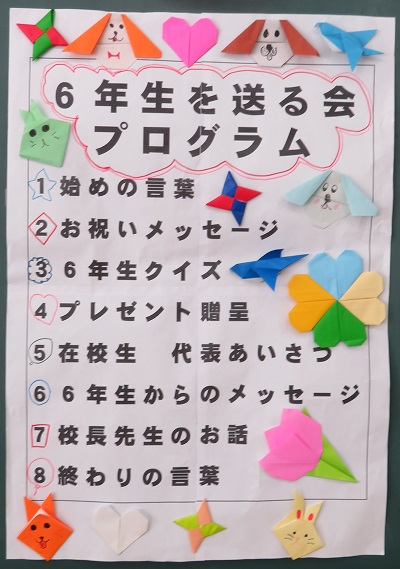 6年生を送る会
プログラム
1 始めの言葉
2 お祝いメッセージ
3 6年生クイズ
4 プレゼント贈呈
5 在校生　代表あいさつ
6 6年生からのメッセージ
7 校長先生のお話
8 終わりの言葉